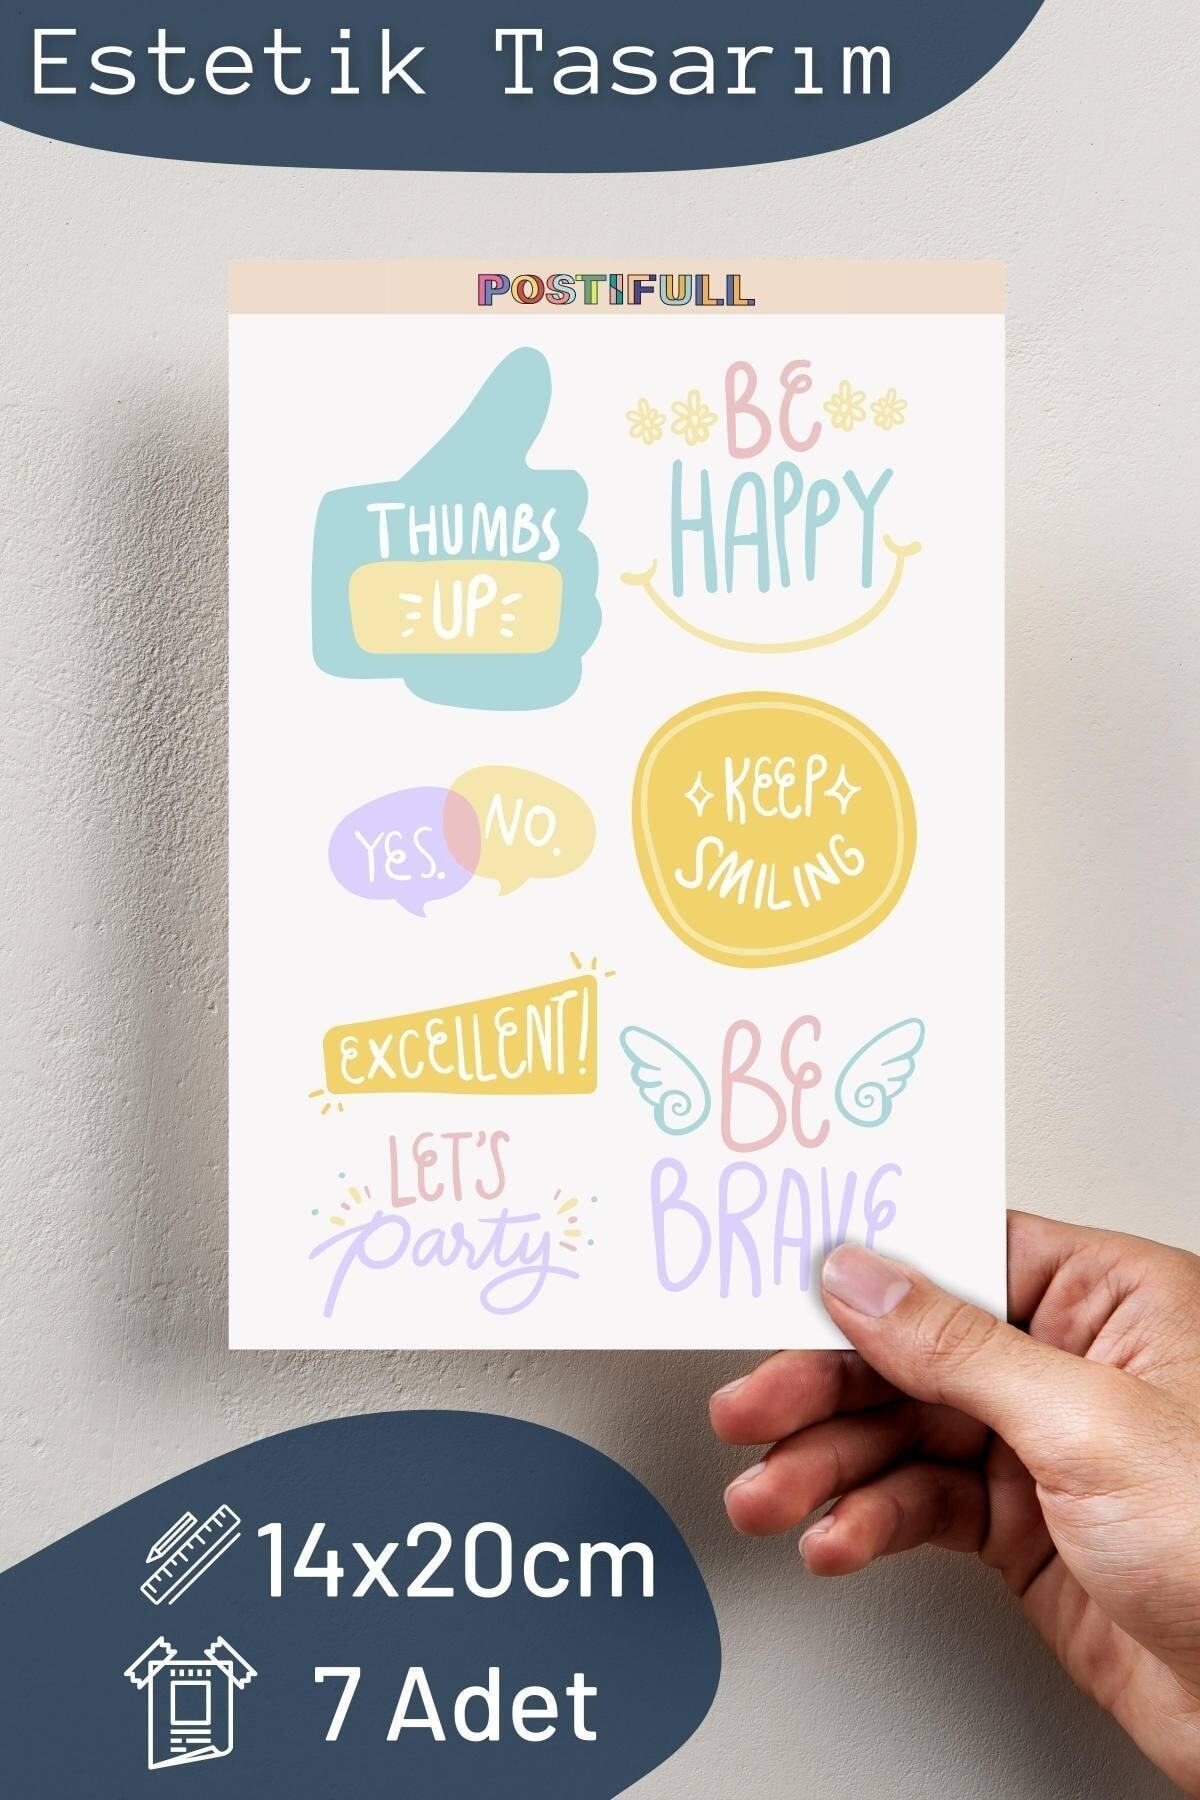 Estetik Tasarım
POSTIFULL
THUMBS
UP
BE
HAPPY
YES.
NO.
KEEP
SMILING
EXCELLENT!
BE
BRAVE
LET'S
Party
14x20cm
7 Adet